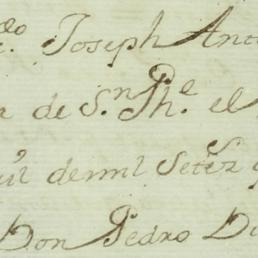 Joseph Ant
de S.n Ph.e el
de mil Setez
Don Pedro D